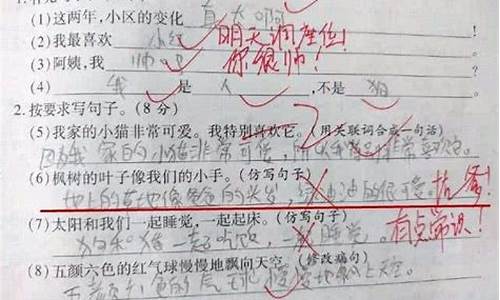 (1)这两年,小区的变化 真大啊
(2)我最喜欢 小红 明天调座位!
(3)阿姨,我 帅吧 你很帅!
(4) 我 是 人 ,不是 狗
2.按要求写句子。(8分)
(5)我家的小猫非常可爱。我特别喜欢它。(用关联词合成一句话)
因为我家的小猫非常可爱,所以我非常喜欢它。
(6)枫树的叶子像我们的小手。(仿写句子)
地上的草地像爸爸的头发,绿油油的很可爱。抗爹!
(7)太阳和我们一起睡觉,一起起床。(仿写句子)
狗和猪一起吃饭,一起睡觉。 有点常识!
(8)五颜六色的红气球慢慢地飘向天空。(修改病句)
五颜六色的气球慢慢地飘上天空。